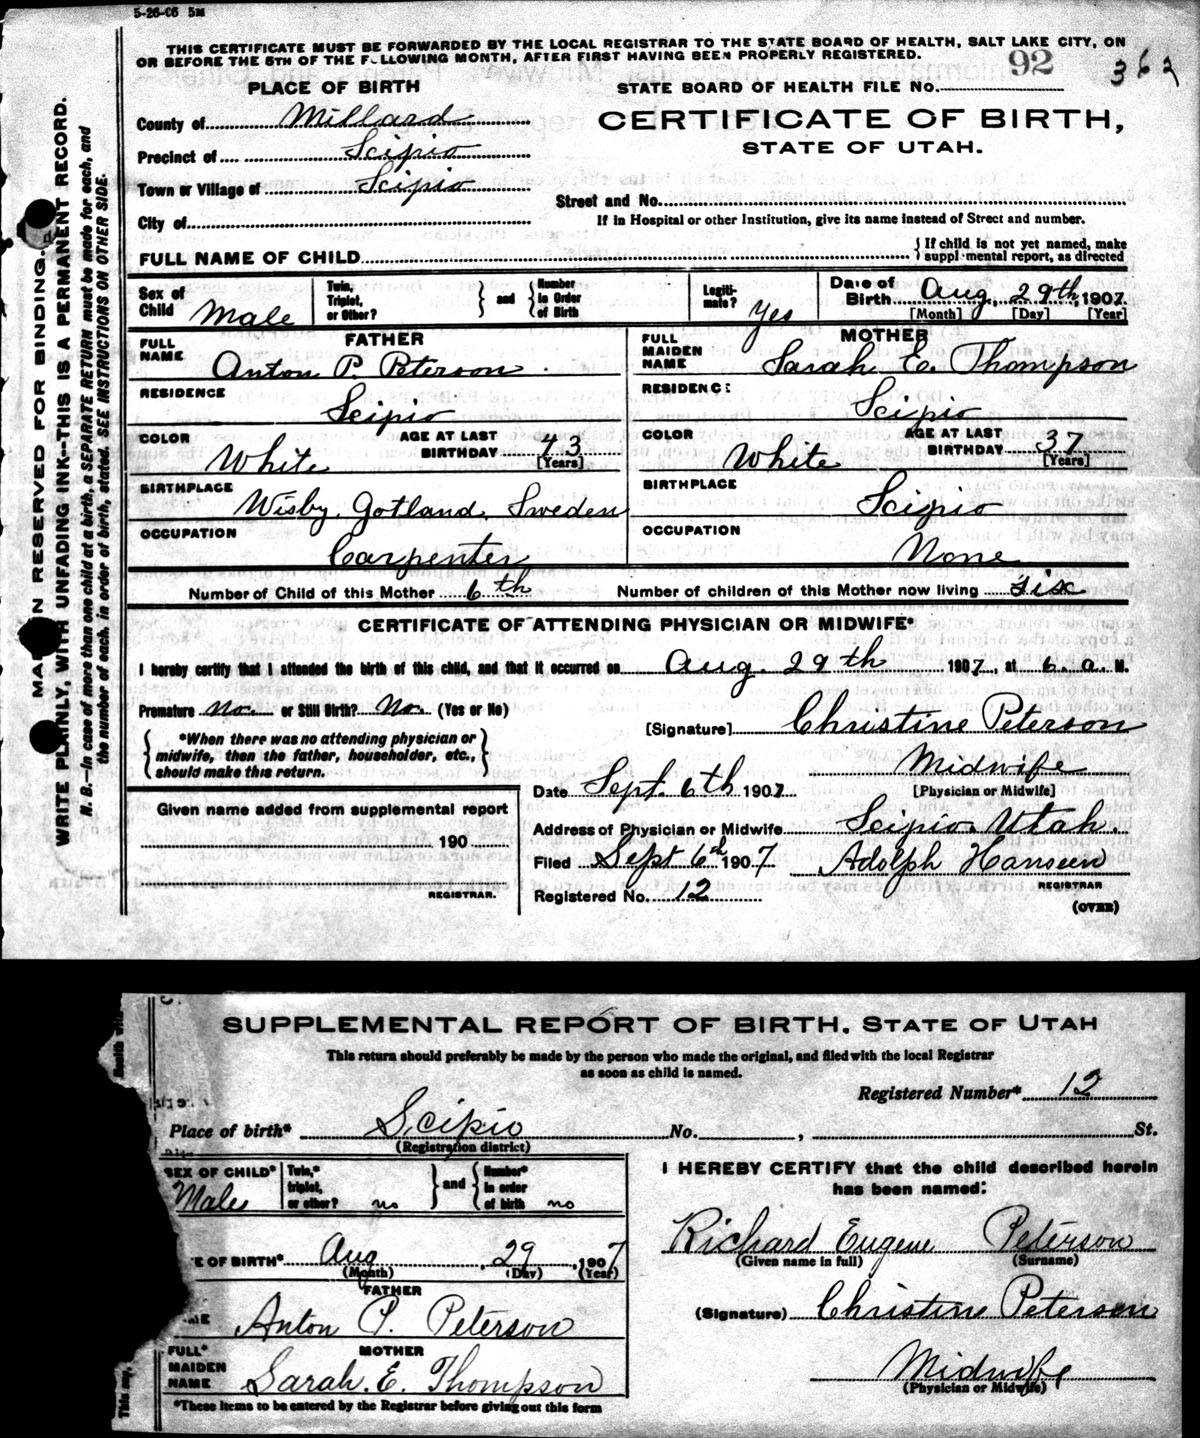 5-26-06 5M
THIS CERTIFICATE MUST BE FORWARDED BY THE LOCAL REGISTRAR TO THE STATE BOARD OF HEALTH, SALT LAKE CITY, ON
OR BEFORE THE 5TH OF THE FOLLOWING MONTH, AFTER FIRST HAVING BEEN PROPERLY REGISTERED.
92
362
PLACE OF BIRTH
STATE BOARD OF HEALTH FILE NO.
County of Millard
CERTIFICATE OF BIRTH,
STATE OF UTAH.
Precinct of Scipio
Town or Village of Scipio
Street and No.
City of
If in Hospital or other Institution, give its name instead of Street and number.
FULL NAME OF CHILD
{ If child is not yet named, make supplemental report, as directed
Sex of Child Male
Twin, Triplet, or Other? } and { Number in Order of Birth
Legitimate? Yes
Date of Birth Aug. 29th, 1907.
[Month] [Day] [Year]
FATHER
FULL NAME Anton P. Peterson
RESIDENCE Scipio
COLOR White
AGE AT LAST BIRTHDAY 43 [Years]
BIRTHPLACE Wisby. Gotland. Sweden
OCCUPATION Carpenter
MOTHER
FULL MAIDEN NAME Sarah E. Thompson
RESIDENCE Scipio
COLOR White
AGE AT LAST BIRTHDAY 37 [Years]
BIRTHPLACE Scipio
OCCUPATION None
Number of Child of this Mother 6th
Number of children of this Mother now living six
CERTIFICATE OF ATTENDING PHYSICIAN OR MIDWIFE*
I hereby certify that I attended the birth of this child, and that it occurred on Aug. 29th 1907, at 6. a. M.
Premature no. or Still Birth? No. (Yes or No)
[Signature] Christine Peterson
{ *When there was no attending physician or midwife, then the father, householder, etc., should make this return. }
Midwife
[Physician or Midwife]
Date Sept. 6th 1907
Address of Physician or Midwife Scipio. Utah.
Filed Sept 6th 1907 Adolph Hanseen
REGISTRAR
Registered No. 12
(OVER)
Given name added from supplemental report
190
REGISTRAR.
MARGIN RESERVED FOR BINDING.
WRITE PLAINLY, WITH UNFADING INK—THIS IS A PERMANENT RECORD.
N. B.—In case of more than one child at a birth, a SEPARATE RETURN must be made for each, and
the number of each, in order of birth, stated. SEE INSTRUCTIONS ON OTHER SIDE.
SUPPLEMENTAL REPORT OF BIRTH. STATE OF UTAH
This return should preferably be made by the person who made the original, and filed with the local Registrar
as soon as child is named.
Registered Number* 12
Place of birth* Scipio No. , St.
(Registration district)
SEX OF CHILD* Male
Twin,* triplet, or other? no } and { Number* in order of birth no
I HEREBY CERTIFY that the child described herein
has been named:
Richard Eugene Peterson
(Given name in full) (Surname)
E OF BIRTH* Aug 29, 1907
(Month) (Day) (Year)
FATHER
Anton P. Peterson
(Signature) Christine Peterson
MOTHER
FULL* MAIDEN NAME Sarah. E. Thompson
Midwife
(Physician or Midwife)
*These items to be entered by the Registrar before giving out this form